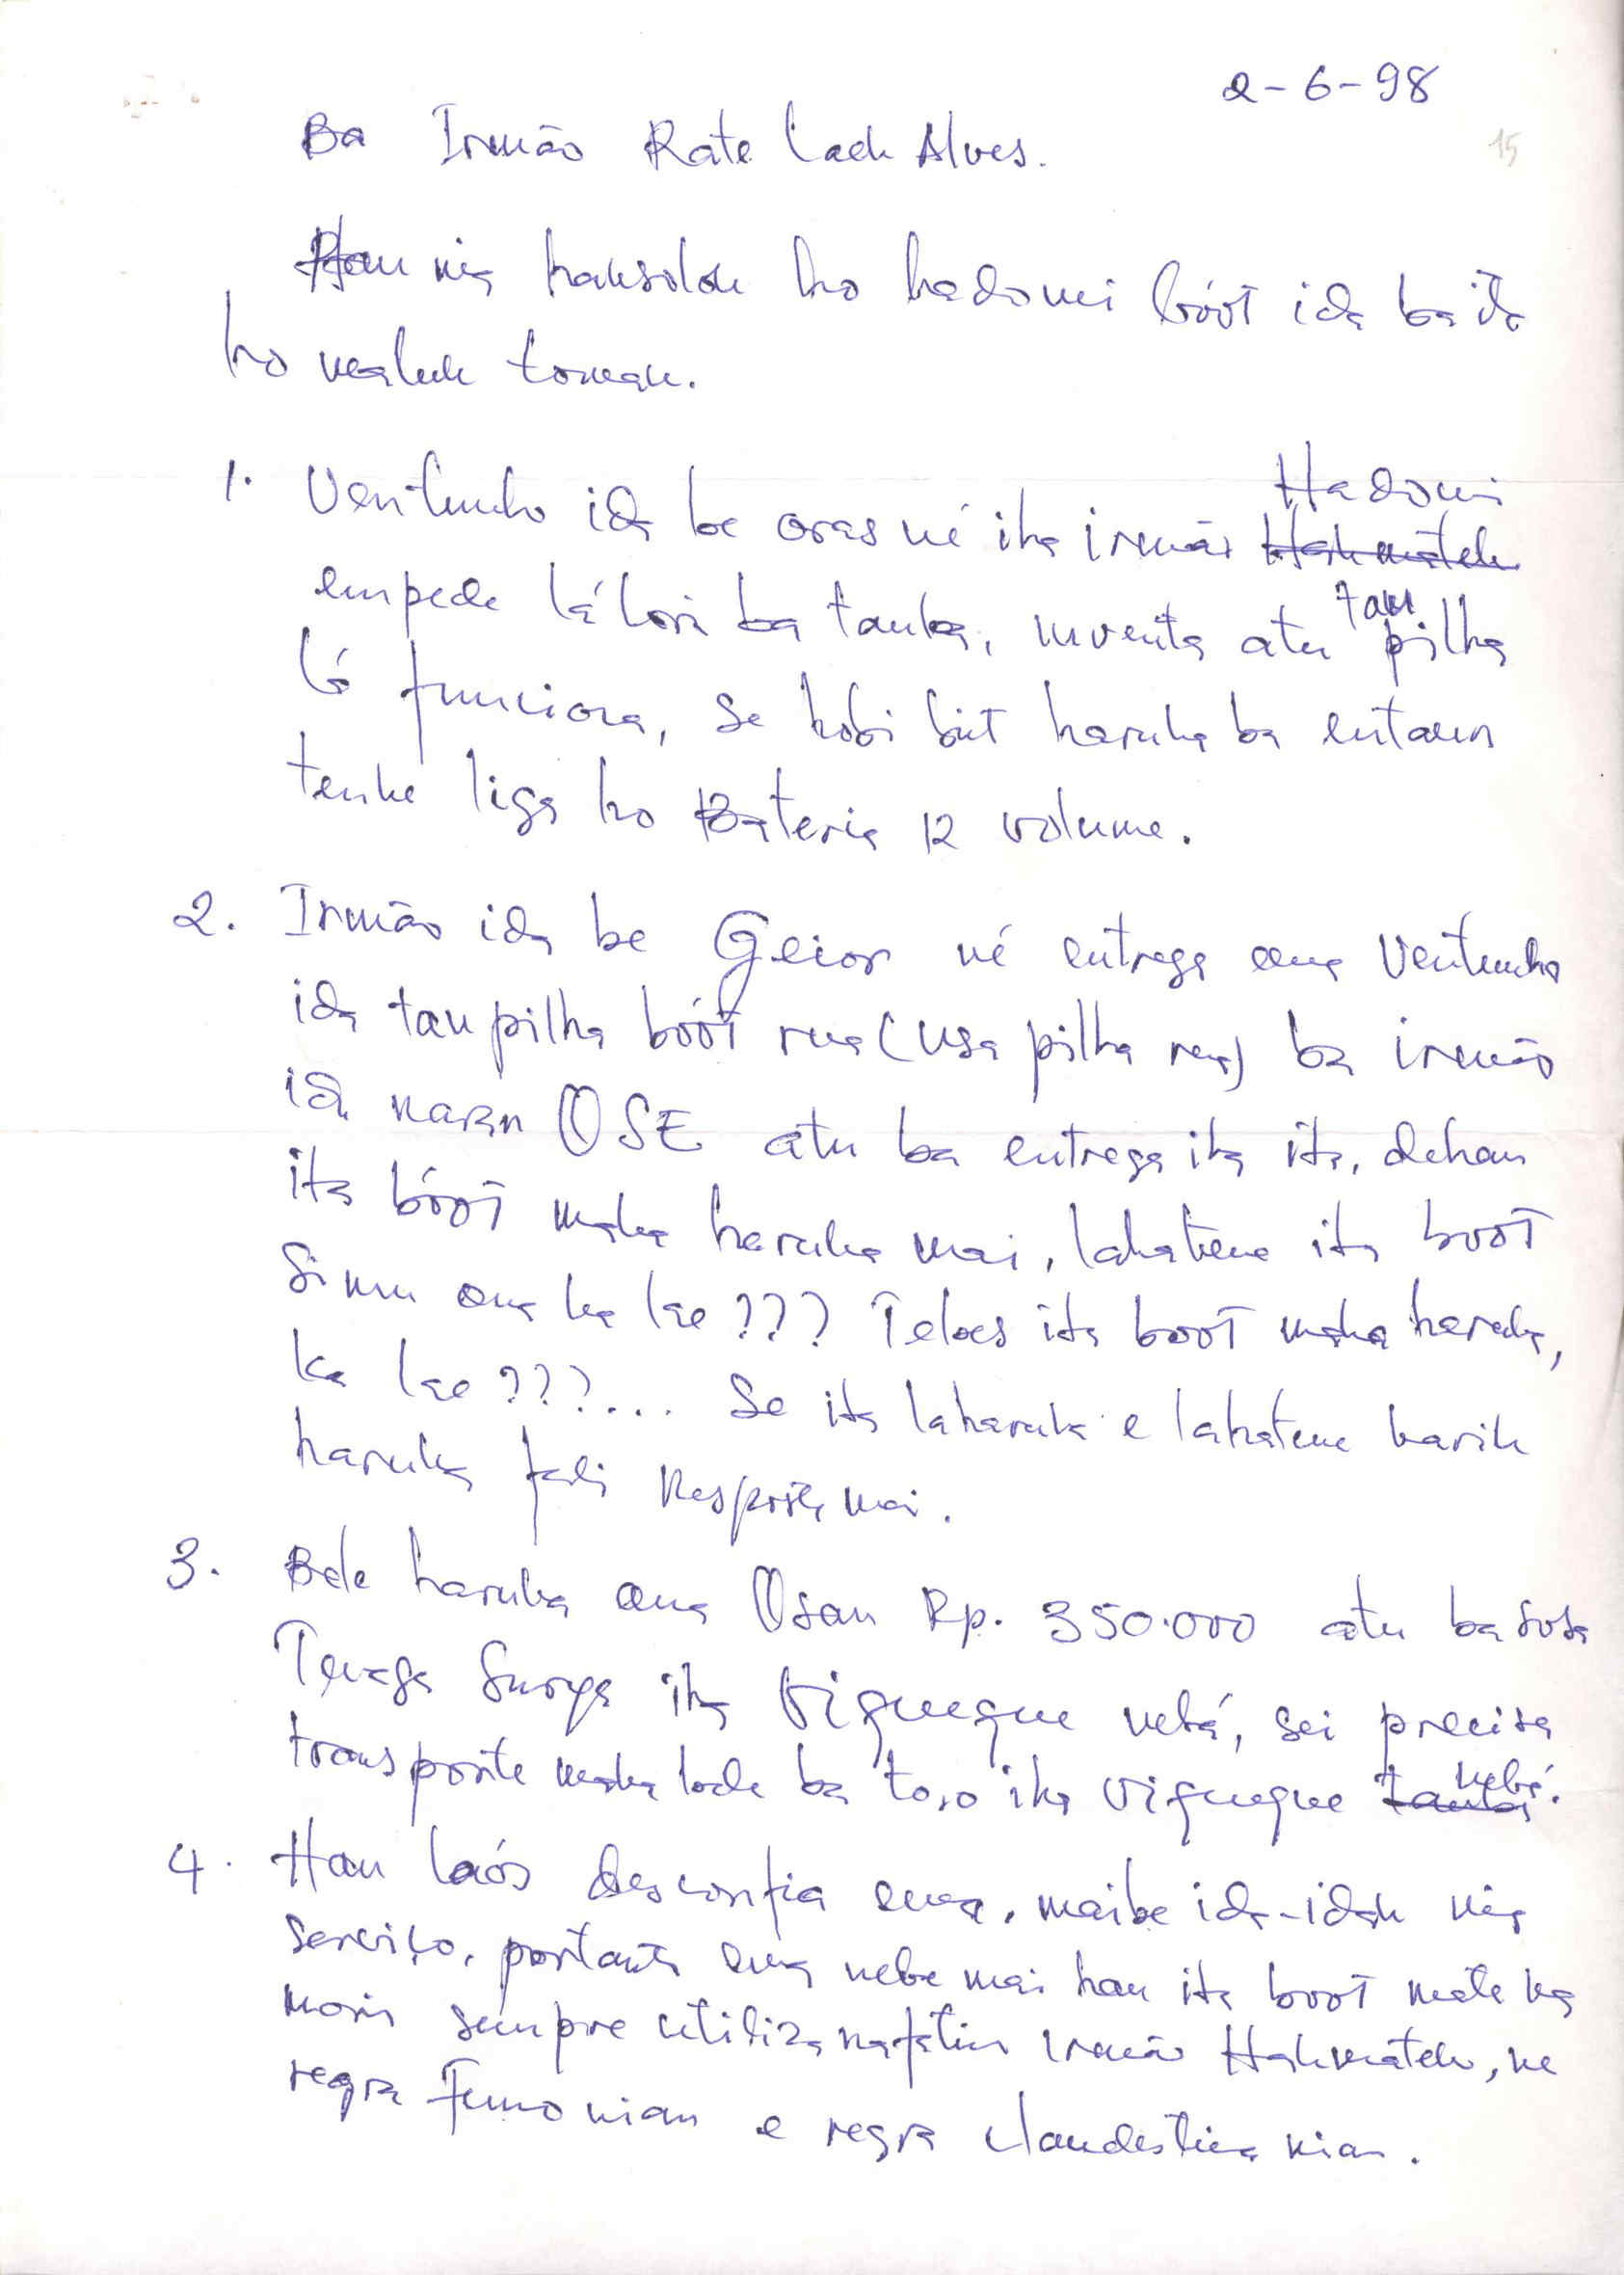 2-6-98
15
Ba Irmão Rate Laek Alves.
Hau nia haksolok ho hadomi bóot ida ba ita
ho maluk tomak.
1. Ventuinha ida be oras né iha irmão Hadomi
empede lá lori ba tanba, inventa atu tau pilha
ló funciona, se hobi but haruka ba entaun
tenke liga ho Bateria 12 volume.
2. Irmão ida be Geior né entrega ona Ventuinha
ida tau pilha bóot rua (usa pilha rua) ba irmão
ida naran OSE atu ba entrega iha ita, dehan
ita bóot maka haruka mai, lahatene ita boot
Simu ona ka lae ??? Teloes ita boot maka haruka,
Ka lae ???... Se ita laharuka e lahatene karik
haruka fali Resposta mai.
3. Bele haruka ona Osan Rp. 350.000 atu ba sosa
Tenaga Surya iha Viqueque nebá, sei precisa
transporte maka lode ba to,o iha Viqueque nebá.
4. Hau laós desconfia ema, maibe ida-idak nia
serviço, portanto ema nebe mai hau ita boot mate ka
moris sempre utiliza nafatin irmão Hakmatek, ne
regra Funo nian e regra clandestina nian.